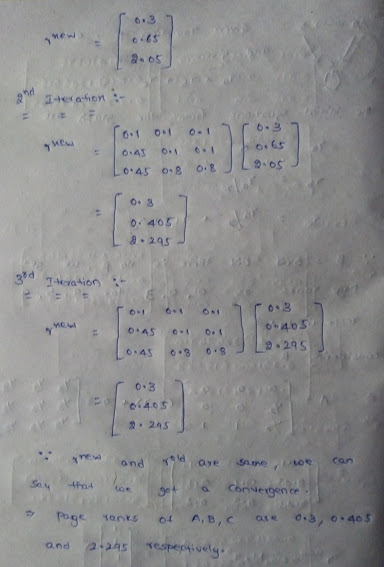 r^new = [ 0.3
0.65
2.05 ]
2nd Iteration :-
= = =
r^new = [ 0.1 0.1 0.1
0.45 0.1 0.1
0.45 0.8 0.8 ] [ 0.3
0.65
2.05 ]
= [ 0.3
0.405
2.295 ]
3rd Iteration :-
= = =
r^new = [ 0.1 0.1 0.1
0.45 0.1 0.1
0.45 0.8 0.8 ] [ 0.3
0.405
2.295 ]
= [ 0.3
0.405
2.295 ]
∵ r^new and r^old are same, we can
say that we get a convergence.
⇒ Page ranks of A, B, C are 0.3, 0.405
and 2.295 respectively.